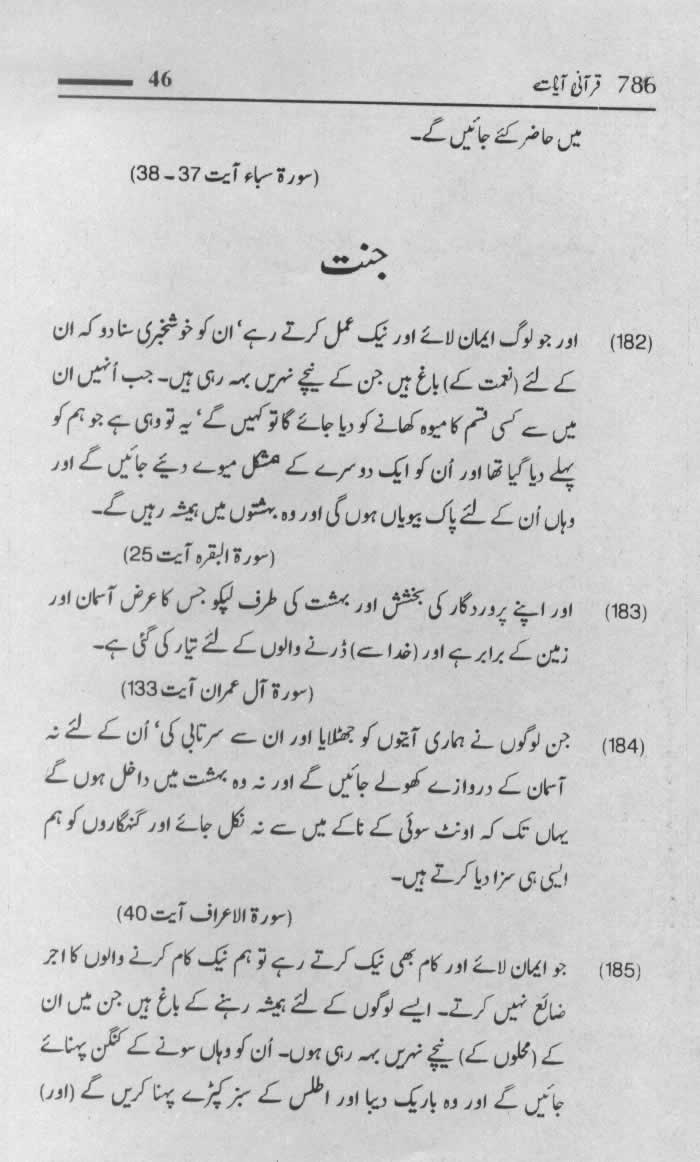 786 قرآنی آیات 46
میں حاضر کئے جائیں گے۔
(سورۃ سباء آیت 37 ۔ 38)
جنت
(182) اور جو لوگ ایمان لائے اور نیک عمل کرتے رہے‘ ان کو خوشخبری سنا دو کہ ان
کے لئے (نعمت کے) باغ ہیں جن کے نیچے نہریں بہہ رہی ہیں۔ جب اُنہیں ان
میں سے کسی قسم کا میوہ کھانے کو دیا جائے گا تو کہیں گے‘ یہ تو وہی ہے جو ہم کو
پہلے دیا گیا تھا اور اُن کو ایک دوسرے کے ہمشکل میوے دیئے جائیں گے اور
وہاں اُن کے لئے پاک بیویاں ہوں گی اور وہ بہشتوں میں ہمیشہ رہیں گے۔
(سورۃ البقرہ آیت 25)
(183) اور اپنے پروردگار کی بخشش اور بہشت کی طرف لپکو جس کا عرض آسمان اور
زمین کے برابر ہے اور (خدا سے) ڈرنے والوں کے لئے تیار کی گئی ہے۔
(سورۃ آل عمران آیت 133)
(184) جن لوگوں نے ہماری آیتوں کو جھٹلایا اور ان سے سرتابی کی‘ اُن کے لئے نہ
آسمان کے دروازے کھولے جائیں گے اور نہ وہ بہشت میں داخل ہوں گے
یہاں تک کہ اونٹ سوئی کے ناکے میں سے نہ نکل جائے اور گنہگاروں کو ہم
ایسی ہی سزا دیا کرتے ہیں۔
(سورۃ الاعراف آیت 40)
(185) جو ایمان لائے اور کام بھی نیک کرتے رہے تو ہم نیک کام کرنے والوں کا اجر
ضائع نہیں کرتے۔ ایسے لوگوں کے لئے ہمیشہ رہنے کے باغ ہیں جن میں ان
کے (محلوں کے) نیچے نہریں بہہ رہی ہوں۔ اُن کو وہاں سونے کے کنگن پہنائے
جائیں گے اور وہ باریک دیبا اور اطلس کے سبز کپڑے پہنا کریں گے (اور)